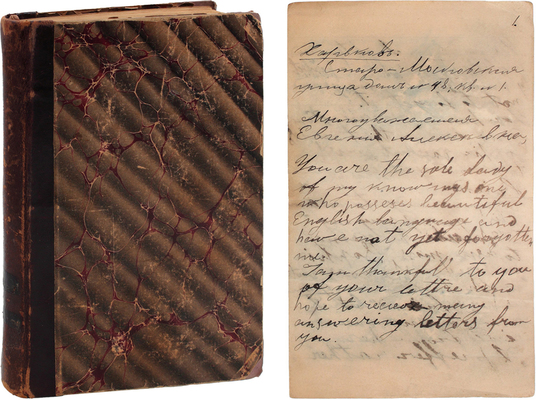 1.
Харьковъ.
Старо-Московская
улица домъ № 48, кв. № 1.
Многоуважаемая
Евгенія
You are the sole lady
of my knowings one
who posseses beautiful
English language and
have not yet forgotten
me.
I am thankful to you
of your lettre and
hope to recieve many
answering letters from
you.